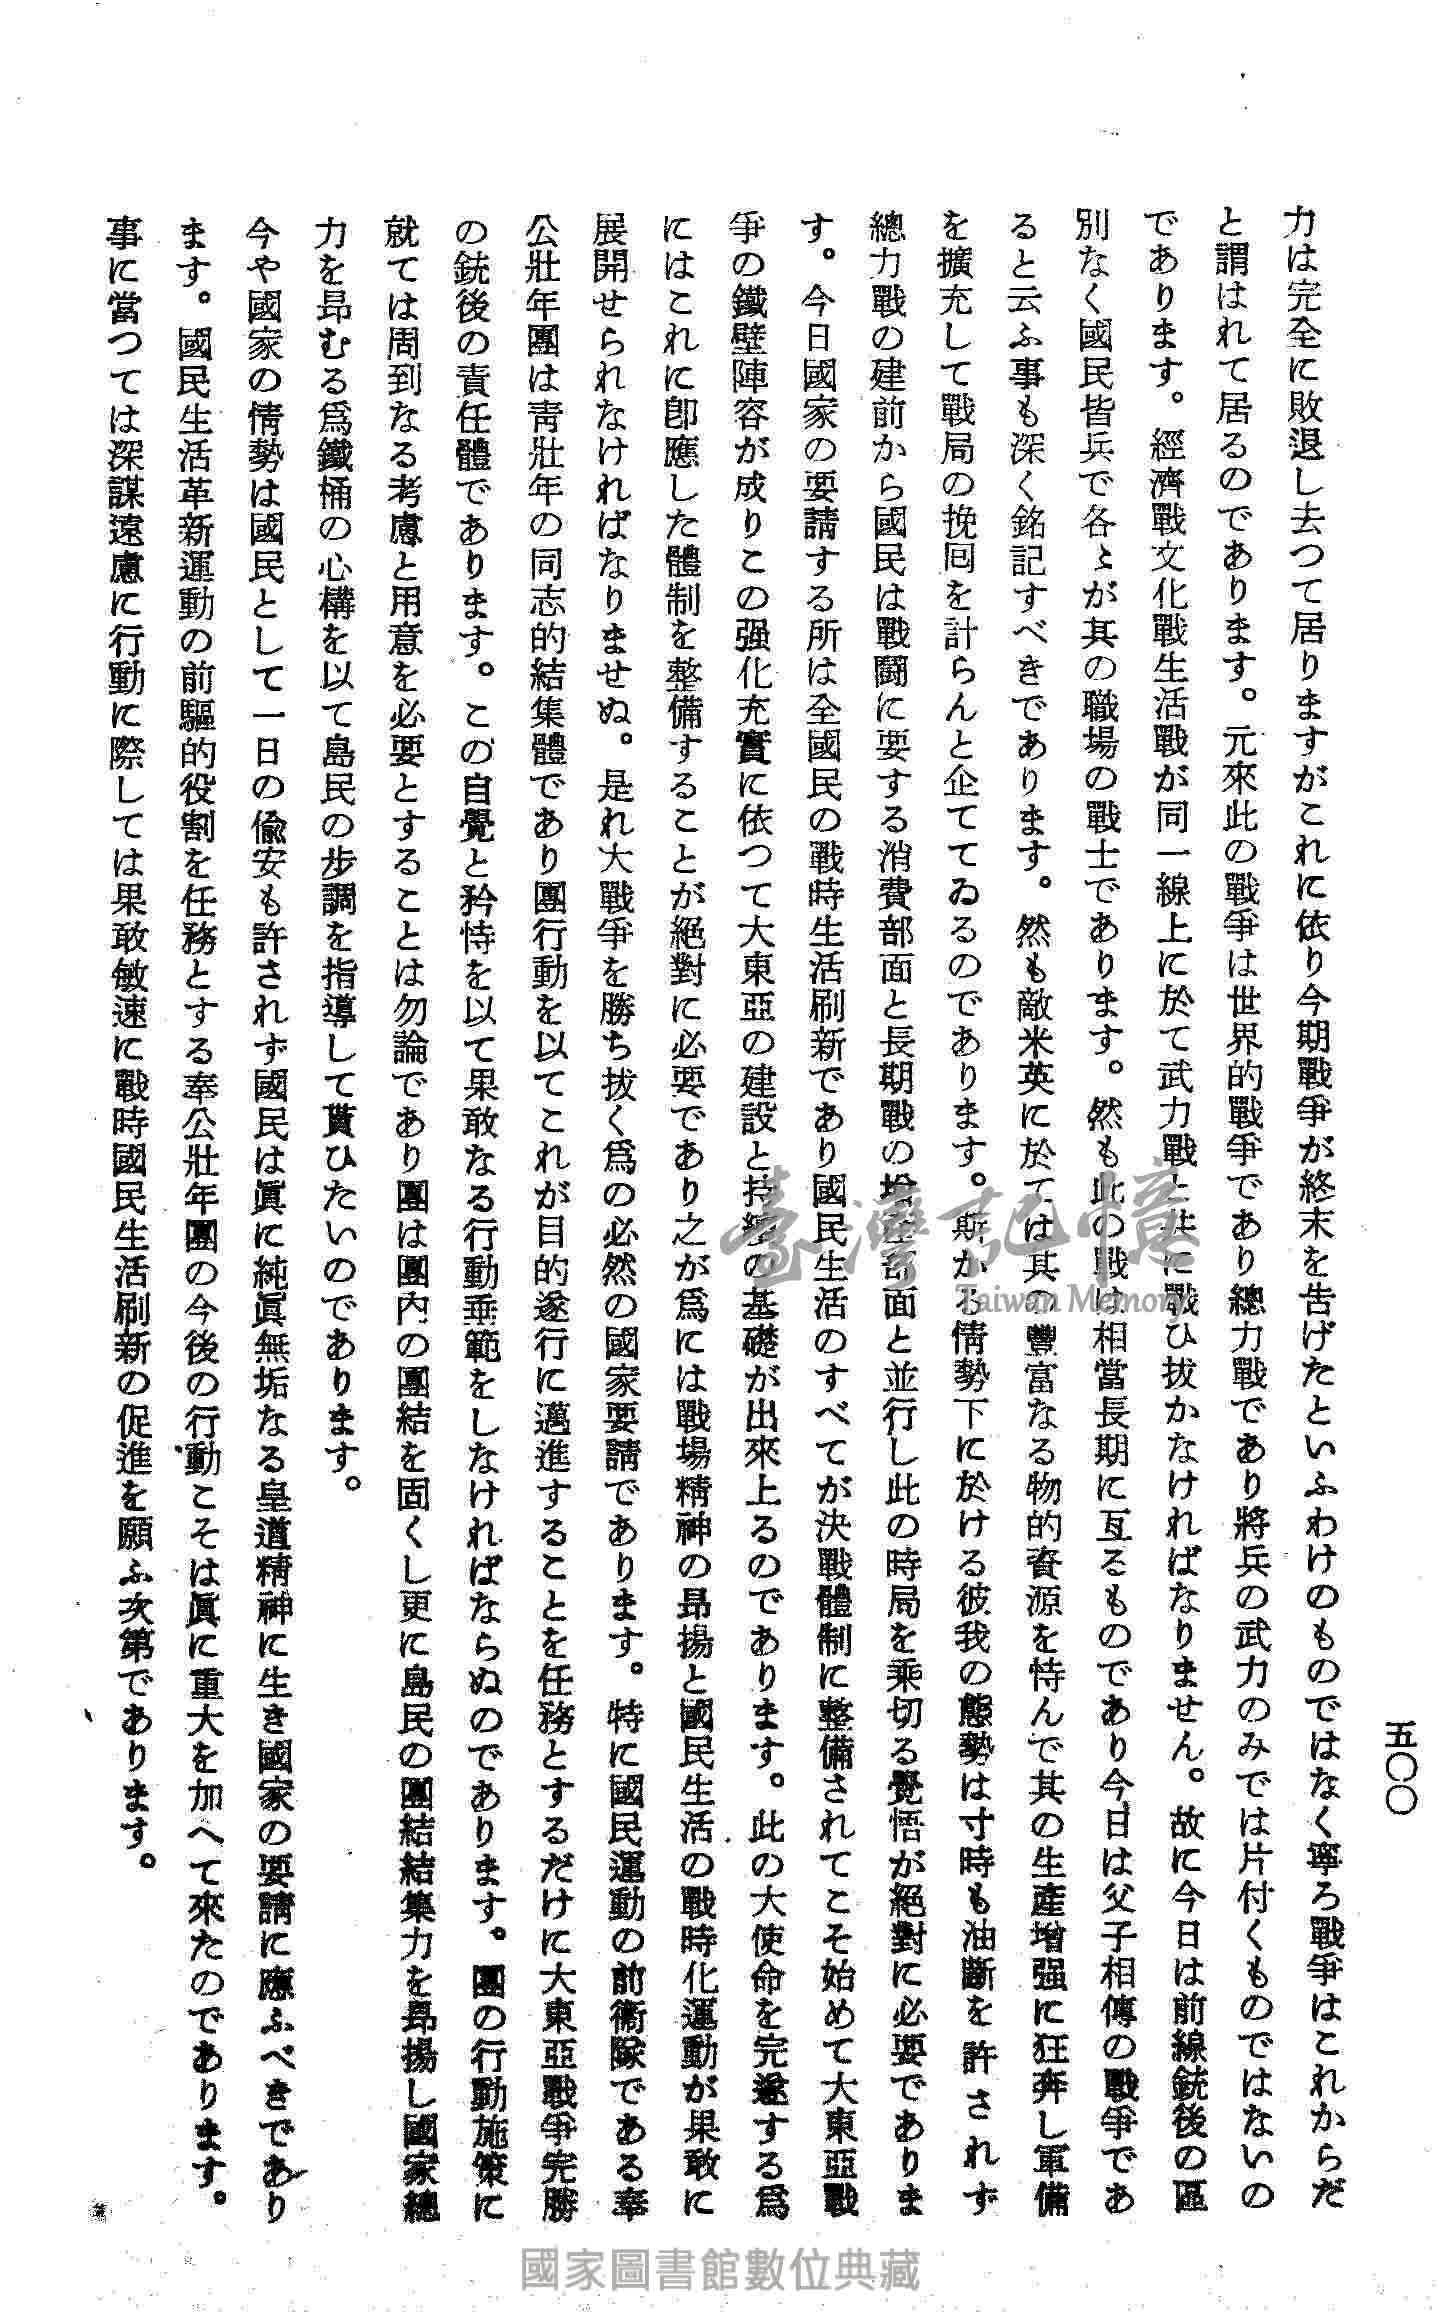 五〇〇
力は完全に敗退し去つて居りますがこれに依り今期戰爭が終末を告げたといふわけのものではなく寧ろ戰爭はこれからだ
と謂はれて居るのであります。元來此の戰爭は世界的戰爭であり總力戰であり將兵の武力のみでは片付くものではないの
であります。經濟戰文化戰生活戰が同一線上に於て武力戰と共に戰ひ拔かなければなりません。故に今日は前線銃後の區
別なく國民皆兵で各〻が其の職場の戰士であります。然も此の戰は相當長期に亙るものであり今日は父子相傳の戰爭であ
ると云ふ事も深く銘記すべきであります。然も敵米英に於ては其の豐富なる物的資源を恃んで其の生產增强に狂奔し軍備
を擴充して戰局の挽囘を計らんと企ててゐるのであります。斯かる情勢下に於ける彼我の態勢は寸時も油斷を許されず
總力戰の建前から國民は戰鬪に要する消費部面と長期戰の增產部面と並行し此の時局を乘切る覺悟が絕對に必要でありま
す。今日國家の要請する所は全國民の戰時生活刷新であり國民生活のすべてが決戰體制に整備されてこそ始めて大東亞戰
爭の鐵壁陣容が成りこの强化充實に依つて大東亞の建設と持續の基礎が出來上るのであります。此の大使命を完遂する爲
にはこれに卽應した體制を整備することが絕對に必要であり之が爲には戰場精神の昂揚と國民生活の戰時化運動が果敢に
展開せられなければなりませぬ。是れ大戰爭を勝ち拔く爲の必然の國家要請であります。特に國民運動の前衞隊である奉
公壯年團は靑壯年の同志的結集體であり團行動を以てこれが目的遂行に邁進することを任務とするだけに大東亞戰爭完勝
の銃後の責任體であります。この自覺と矜恃を以て果敢なる行動垂範をしなければならぬのであります。團の行動施策に
就ては周到なる考慮と用意を必要とすることは勿論であり團は團內の團結を固くし更に島民の團結結集力を昂揚し國家總
力を昂むる爲鐵桶の心構を以て島民の步調を指導して貰ひたいのであります。
今や國家の情勢は國民として一日の偸安も許されず國民は眞に純眞無垢なる皇道精神に生き國家の要請に應ふべきであり
ます。國民生活革新運動の前驅的役割を任務とする奉公壯年團の今後の行動こそは眞に重大を加へて來たのであります。
事に當つては深謀遠慮に行動に際しては果敢敏速に戰時國民生活刷新の促進を願ふ次第であります。
臺灣記憶
Taiwan Memory
國家圖書館數位典藏